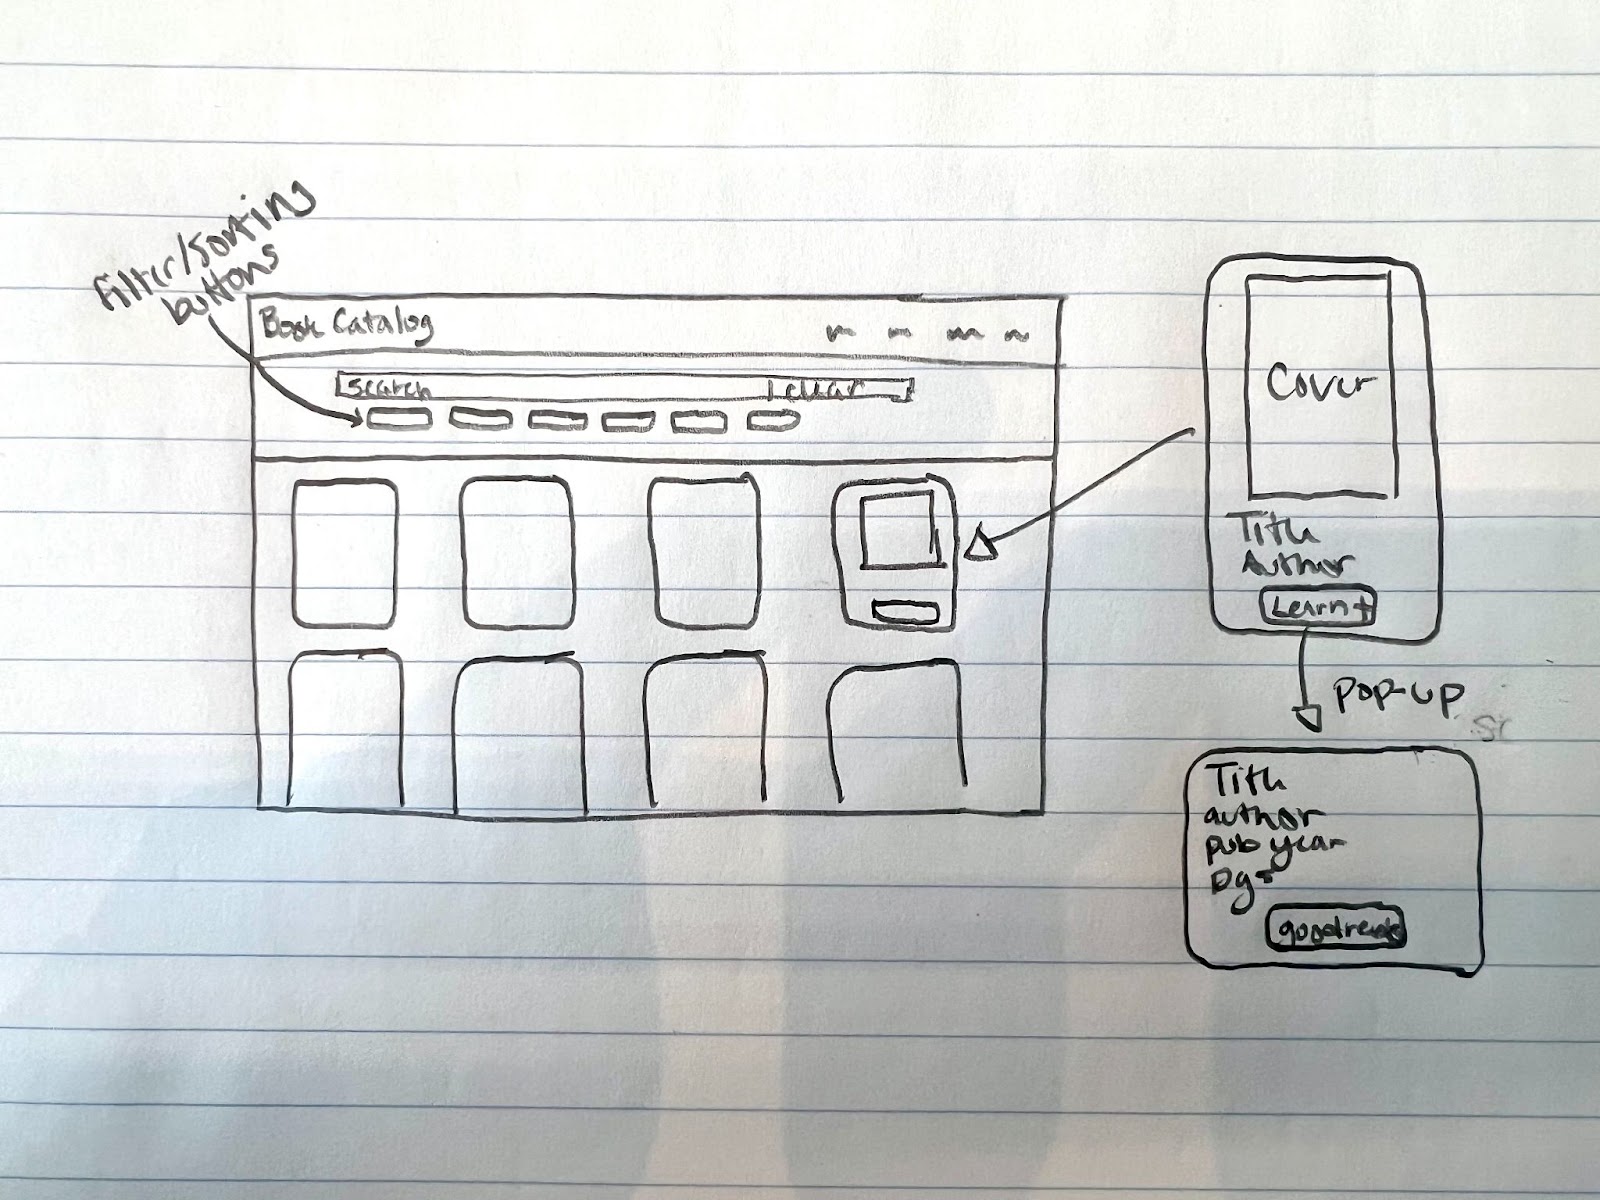 Filter/Sorting
buttons
Book Catalog
search
clear
Cover
Title
Author
Learn +
POP-UP
Title
author
pub year
pgs
goodreads